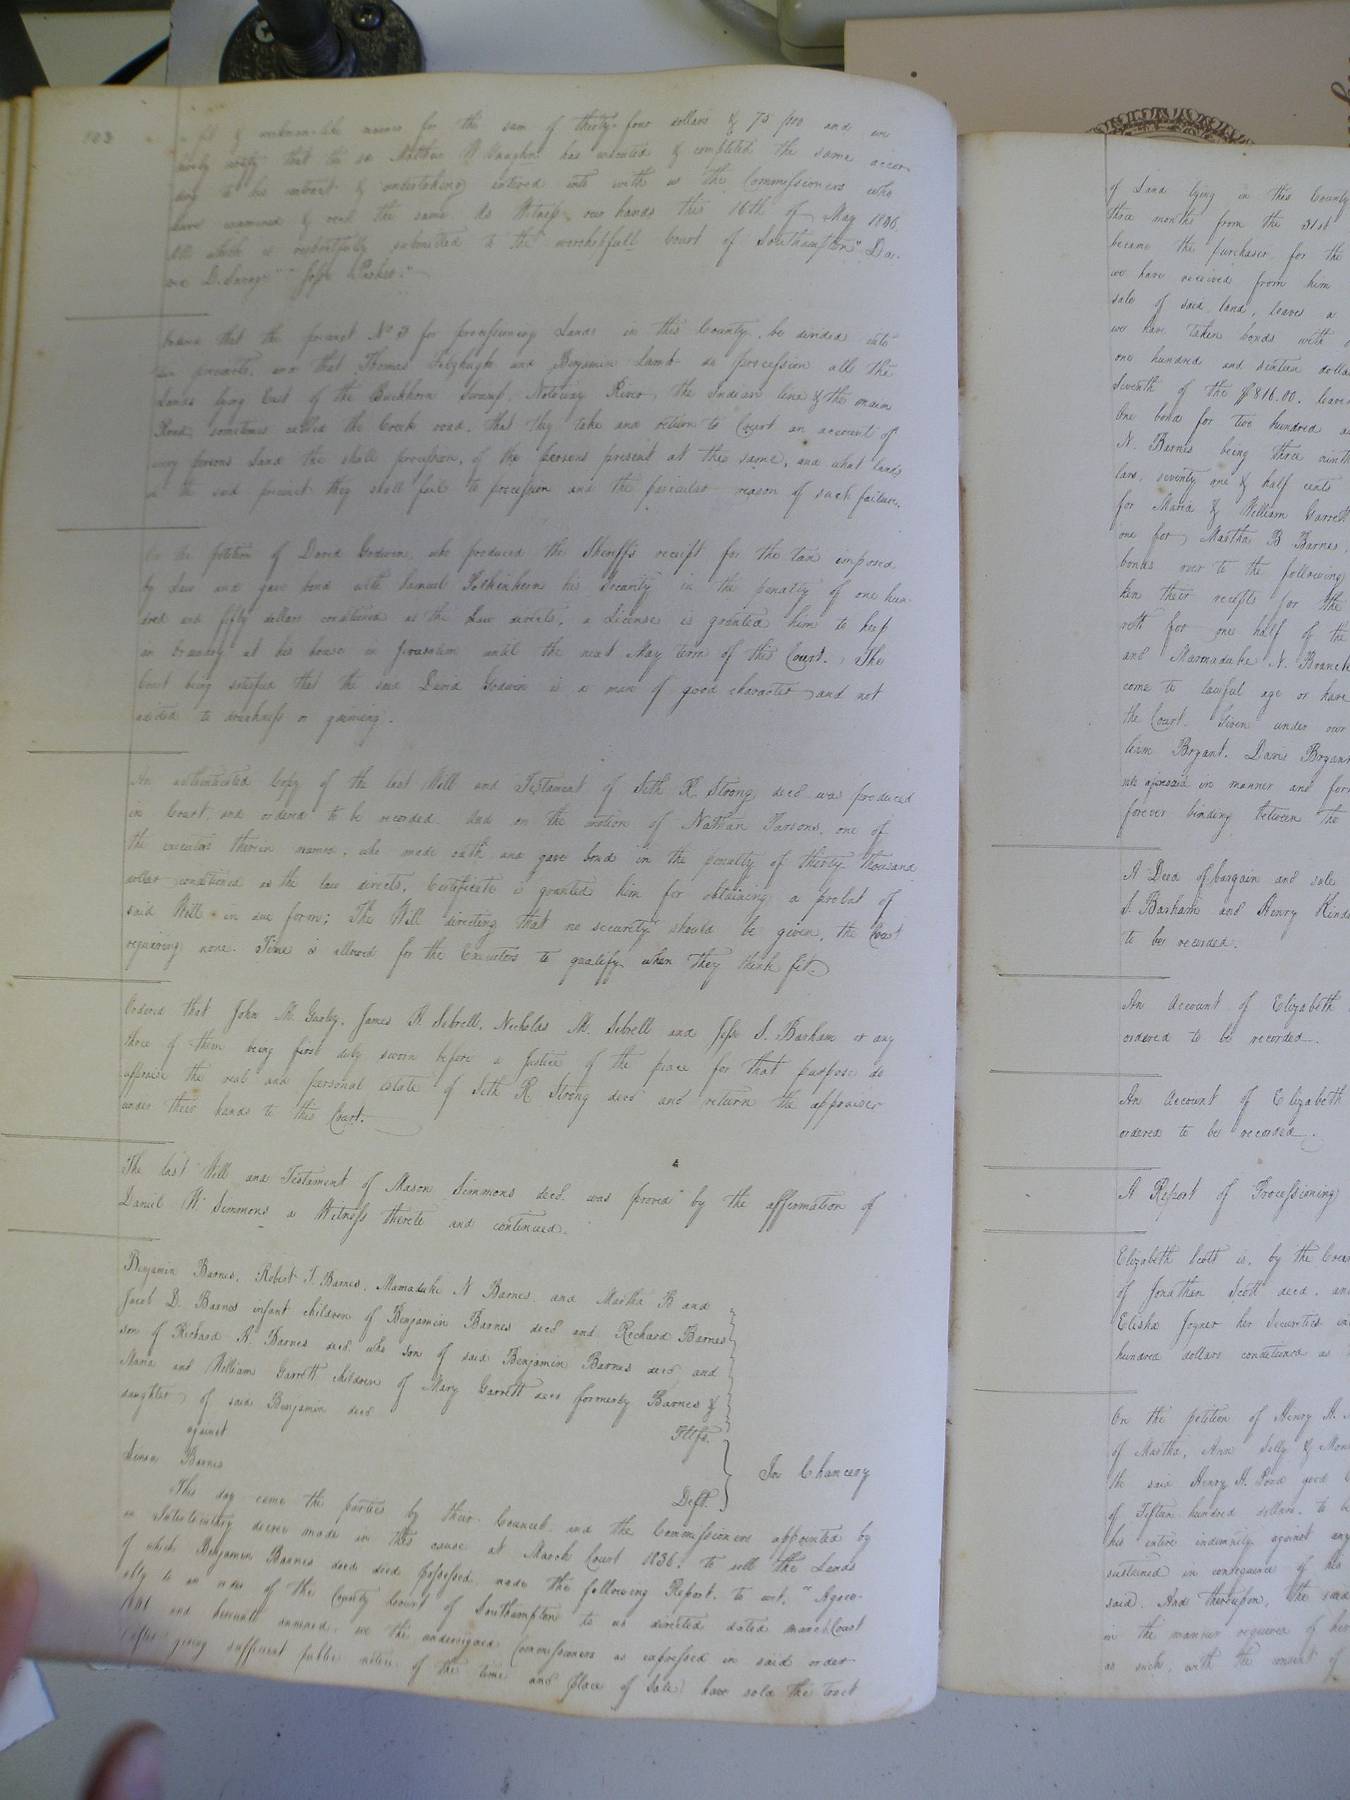 & workman-like manner for the sum of thirty-four dollars & 75 and we
certify that the sd Matthew W Vaughn has executed & completed the same accor-
ding to his contract & undertaking entered into with us the Commissioners who
have examined & recd the same. As Witness our hands this 16th of May 1836.
All which is respectfully submitted to the worshipfull Court of Southampton". Da-
D. Savage" "Jesse Parker."
Ordered that the precinct No 3 for processioning Lands in this County, be divided into
two precincts, and that Thomas and Benjamin Lamb do procession all the
Lands lying East of the Buckhorn Swamp, Notoway River, the Indian line & the main
Road, sometimes called the Creek road. That they take and return to Court an account of
every persons Land the shall procession, of the persons present at the same, and what lands
in the said precinct they shall fail to procession and the particular reason of such failure.
On the petition of David Godwin, who produced the Sheriffs receipt for the tax imposed
by Law and gave bond with Samuel his Security in the penalty of one hun-
dred and fifty dollars conditioned as the Law directs, a License is granted him to keep
an Ordinary at his house in Jerusalem until the next May term of this Court. The
Court being satisfied that the said David Godwin is a man of good character and not
addicted to drunkness or gaming.
An authenticated Copy of the last Will and Testament of Seth R Strong decd was produced
in Court, and ordered to be recorded. And on the motion of Nathan Parsons, one of
the executors therein named, who made oath and gave bond in the penalty of thirty thousand
dollars conditioned as the law directs, Certificate is granted him for obtaining a probat of
said Will in due form; The Will directing that no security should be given, the Court
requiring none. Time is allowed for the Executors to qualify when they think fit.
Ordered that John M. Gurley, James R. Sebrell, Nicholas M. Sebrell and Jesse S. Barham or any
three of them being first duly sworn before a Justice of the peace for that purpose do
appraise the real and personal estate of Seth R Strong decd and return the appraismt
under their hands to this Court.
The last Will and Testament of Mason Simmons decd. was proved by the affirmation of
Daniel W Simmons a Witness thereto and continued.
Benjamin Barnes, Robert T. Barnes, Mamaduke N Barnes, and Martha B and
Jacob D. Barnes infant children of Benjamin Barnes decd and Richard Barnes
son of Richard R Barnes decd. who son of said Benjamin Barnes decd and
Maria and William Garrett children of Mary Garrett decd formerly Barnes &
daughter of said Benjamin decd
Pltfs.
against
Simon Barnes
Deft.
In Chancery
This day came the parties by their Councel and the Commissioners appointed by
an Interlocutory decree made in this cause at March Court 1836. to sell the Lands
of which Benjamin Barnes decd died possessed, made the following Report, to wit, "Agree-
ably to an order of the County Court of Southampton to us directed dated march Court
1836 and hereunto annexed, we the undersigned Commissioners as expressed in said order
(after giving sufficient public notice of the time and place of Sale) have sold the tract
of Land lying in this County
three months from the 31st
became the purchaser for the
we have received from him
sale of said land, leaves a
we have taken bonds with
one hundred and sixteen dolla
Seventh of the $816.00. leave
One bond for two hundred a
N. Barnes being three ninth
lars, seventy one & half cents
for Maria & William Garrett
one for Martha B Barnes,
bonds over to the following
ken their receipts for the
rett for one half of the
and Marmaduke N. Branch
come to lawful age or have
the Court. Given under our
liam Bryant. Davis Bryant
nts aforesaid in manner and for
forever binding between the
A Deed of bargain and sale
S. Barham and Henry Kind
to be recorded.
An Account of Elizabeth
ordered to be recorded.
An Account of Elizabeth
ordered to be recorded.
A Report of Processioning
Elizabeth Scott is, by the Cour
of Jonathan Scott decd, and
Elisha Joyner her Securities
hundred dollars conditioned as
On the petition of Henry H.
of Martha, Ann Selly & Mon
the said Henry H. Pond good
of Fifteen hundred dollars, to be
his entire indemnity against any
sustained in consequence of his
said. And thereupon, the said
in the manner required of her
as such, with the consent of